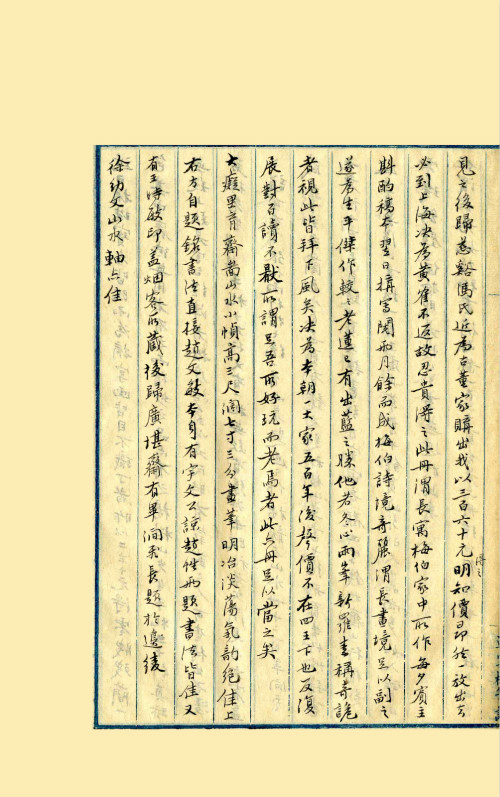 見之後歸慈谿馮氏近為古董家購出我以三百六十元得之明知價昂然一放出去
必到上海決為黃雀不返故忍貴得之此冊渭長寓梅伯家中所作每夕賓主
斟酌稿本翌日構寫閱兩月餘而成梅伯詩境奇麗渭長畫境足以副之
遂為生平傑作較之老蓮已有出藍之勝他若冬心兩峯新羅素稱奇詭
者視此皆拜下風矣決為本朝一大家五百年後聲價不在四王下也反復
展對百讀不厭所謂足吾所好玩而老焉者此冊足以當之矣
大癡里育齋嵩山水小幀高三尺闊七寸三分畫筆明冶淡蕩氣韻絕佳上
右方自題銘書法直接趙文敏本身有宇文公諒趙性兩題書法皆佳又
有王時敏印蓋烟客所藏後歸廣堪齋有畢澗飛長題於邊綾
徐幼文山水軸亦佳